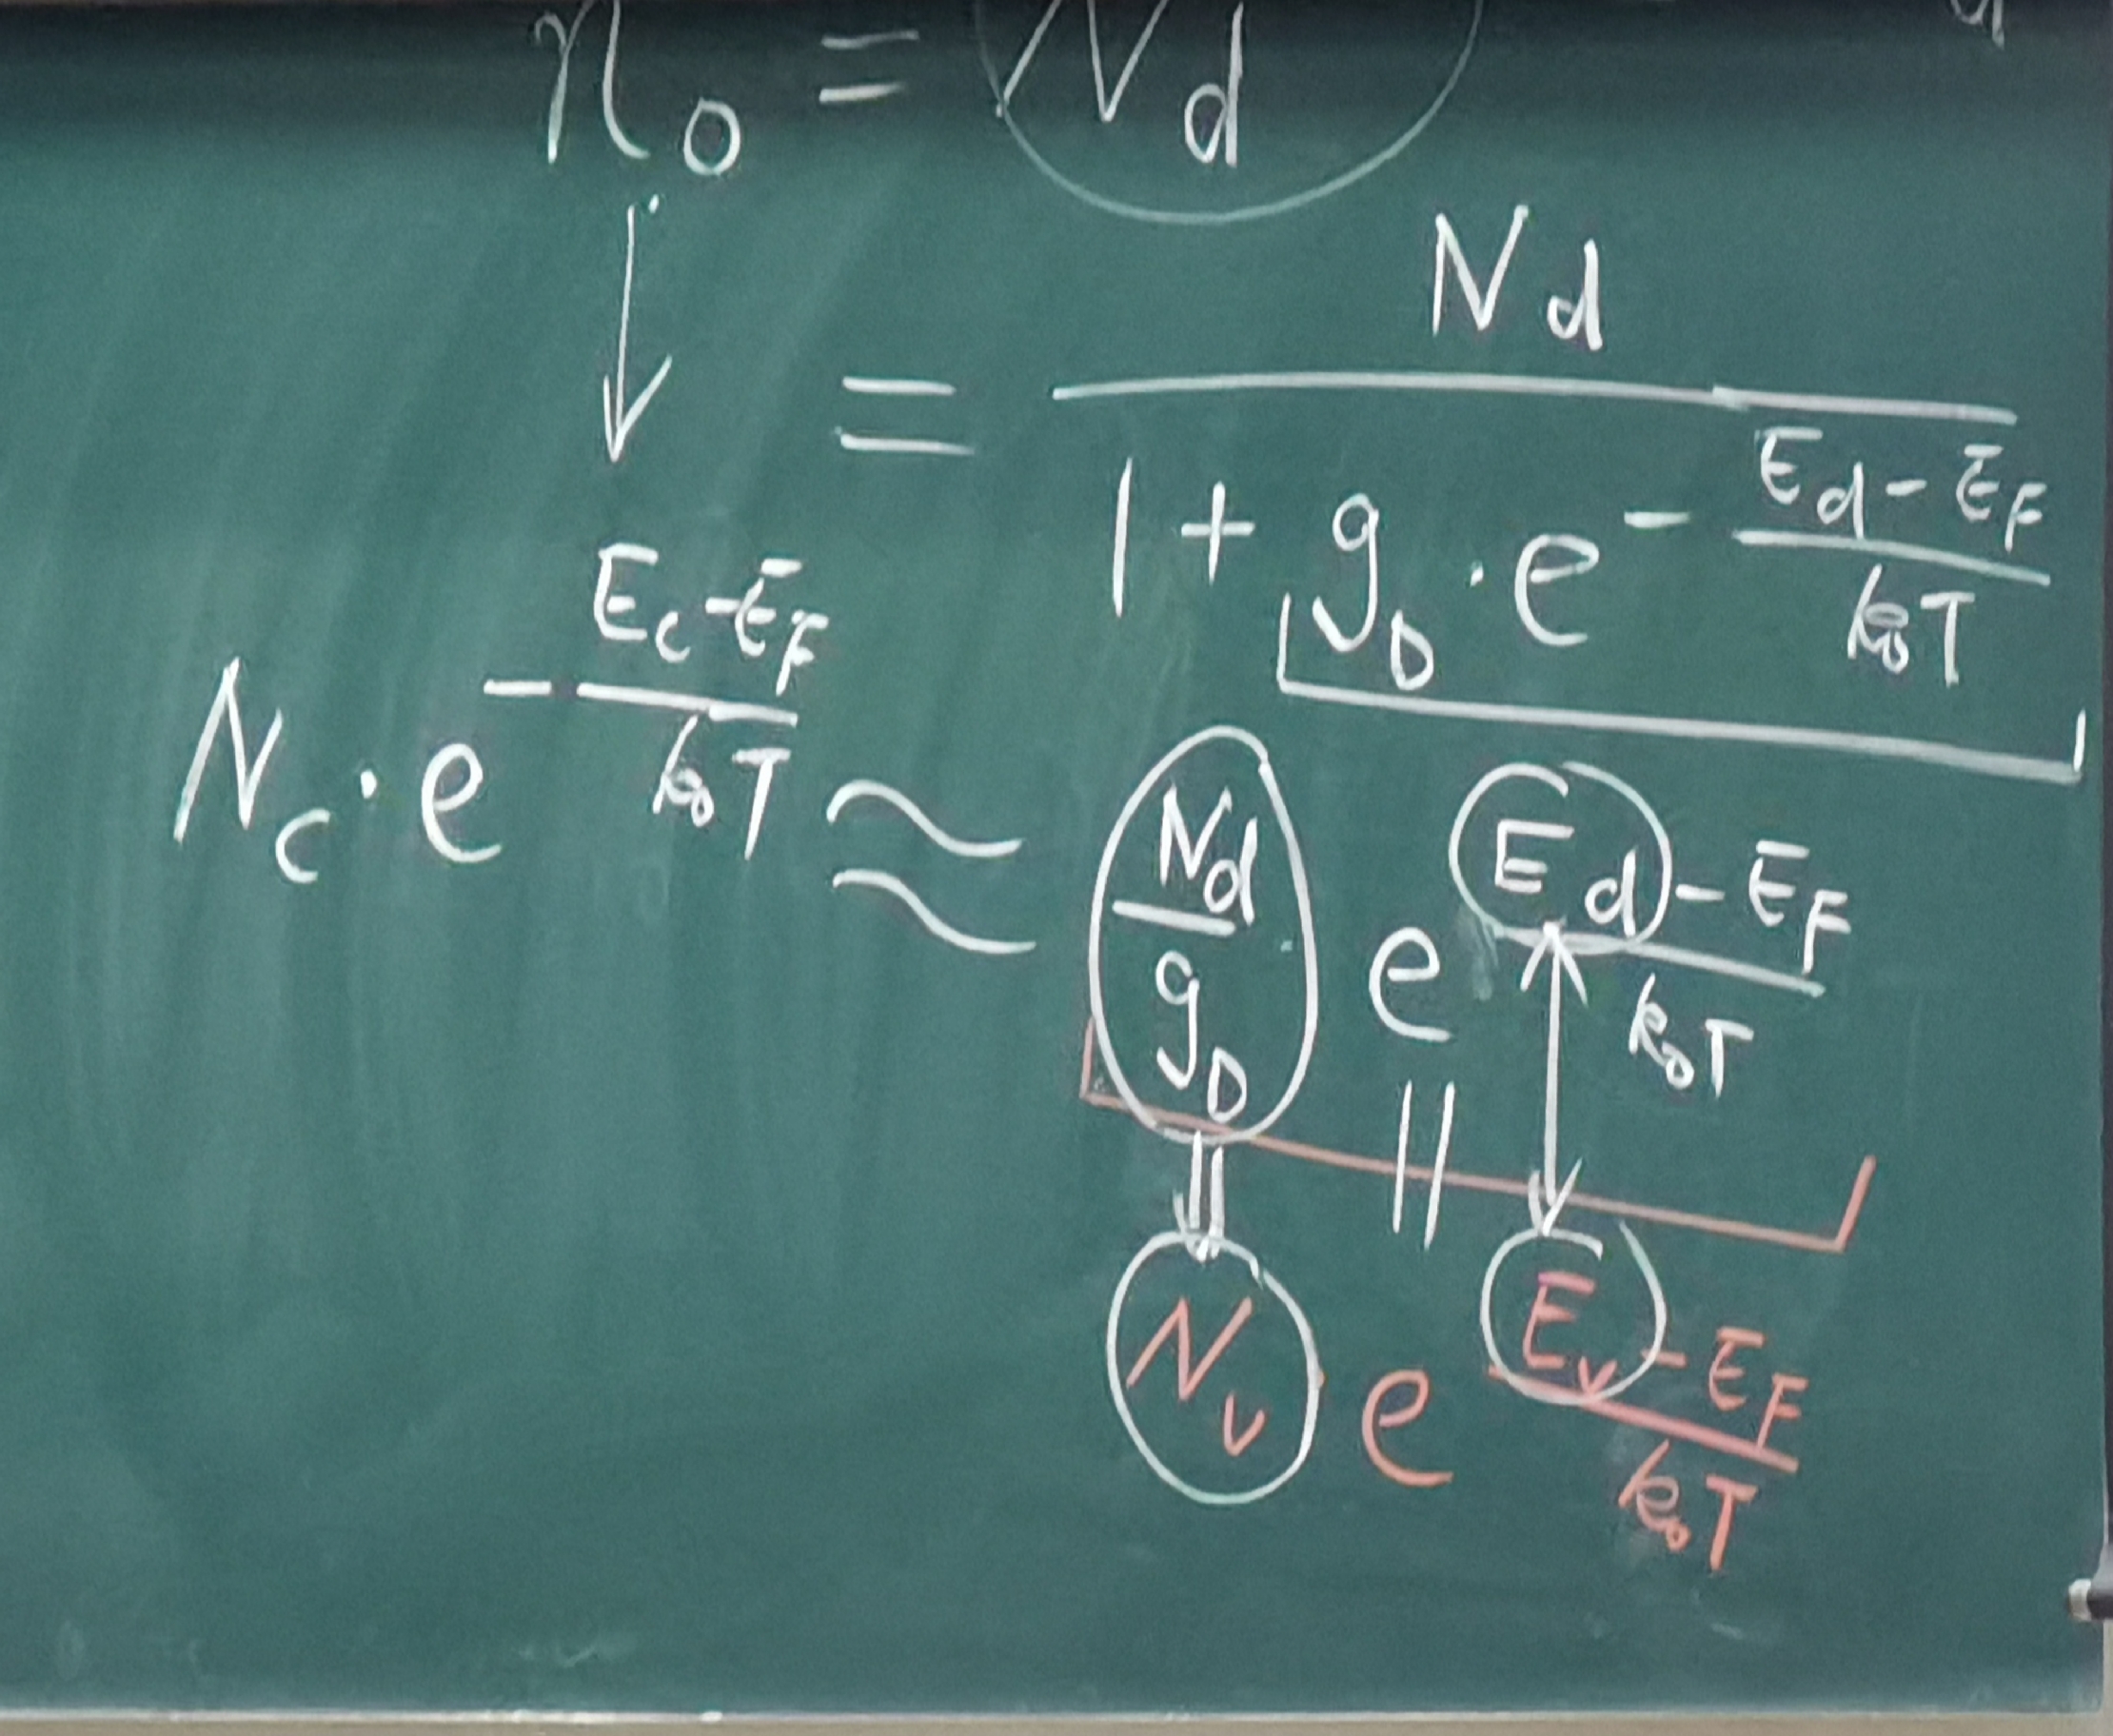 n₀ = N_d
= N_d / (1 + g_D · e^(−(E_d − E_F)/k₀T))
N_c · e^(−(E_c − E_F)/k₀T) ≈ (N_d/g_D) e^((E_d − E_F)/k₀T)
||
N_v e^((E_v − E_F)/k₀T)